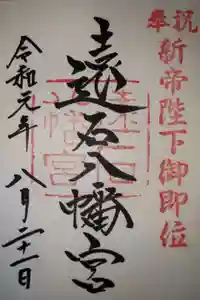 奉祝
新帝陛下御即位
遠石八幡宮
令和元年
八月二十一日